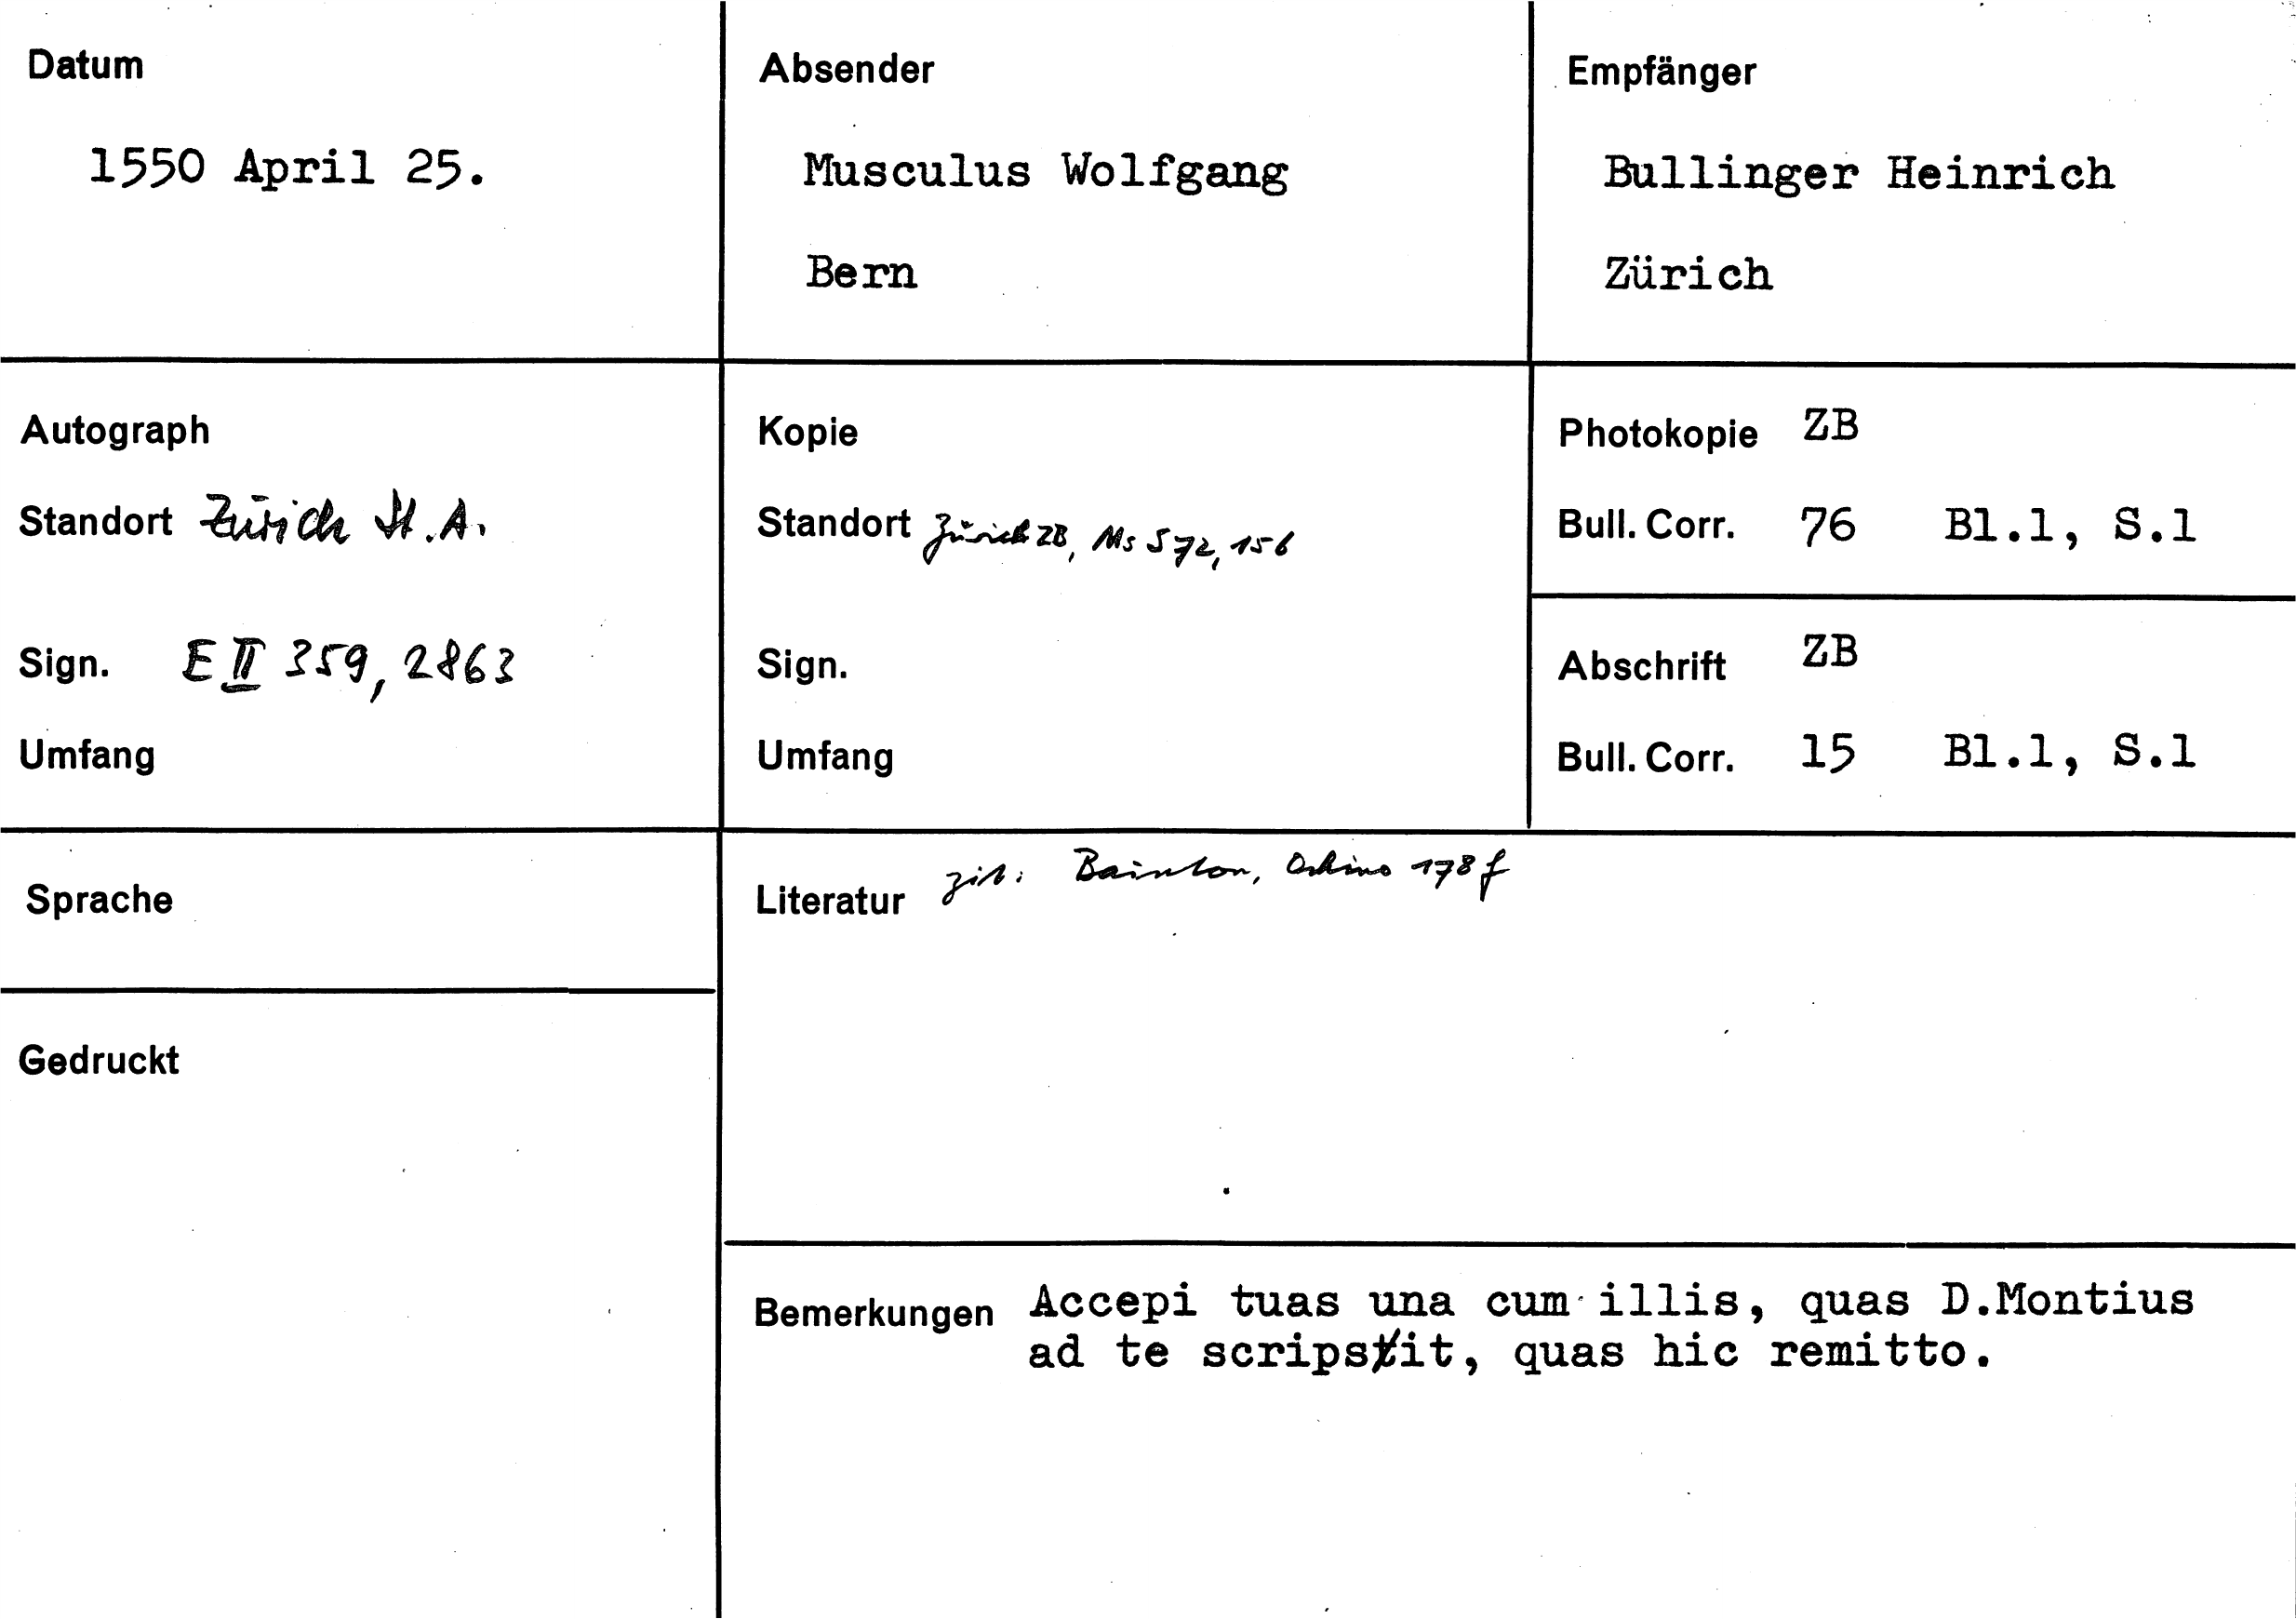 Datum
1550 April 25.
Absender
Musculus Wolfgang
Bern
Empfänger
Bullinger Heinrich
Zürich
Autograph
Standort Zürich St.A.
Sign. E II 359, 2863
Umfang
Kopie
Standort Zürich ZB, Ms S 72, 156
Sign.
Umfang
Photokopie ZB
Bull. Corr. 76 Bl.1, S.1
Abschrift ZB
Bull. Corr. 15 Bl.1, S.1
Sprache
Gedruckt
Literatur zit: Bainton, Ochino 178 f
Bemerkungen Accepi tuas una cum illis, quas D.Montius
ad te scripsit, quas hic remitto.